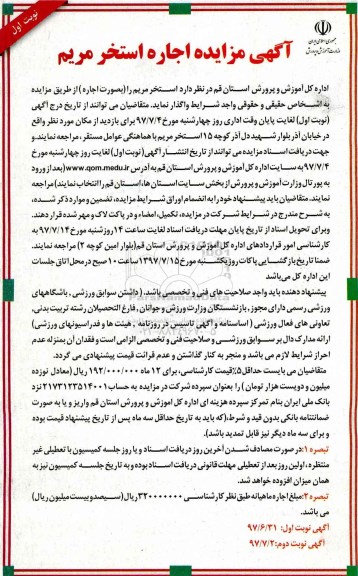 نوبت اول
جمهوری اسلامی ایران
وزارت آموزش و پرورش
آگهی مزایده اجاره استخر مریم
اداره کل آموزش و پرورش استان قم در نظر دارد استخر مریم را (بصورت اجاره) از طریق مزایده
به اشخاص حقیقی و حقوقی واجد شرایط واگذار نماید. متقاضیان می توانند از تاریخ درج آگهی
(نوبت اول) لغایت پایان وقت اداری روز چهارشنبه مورخ ۹۷/۷/۴ برای بازدید از مکان مورد نظر واقع
در خیابان آذر بلوار شهید دل آذر کوچه ۱۵ استخر مریم با هماهنگی عوامل مستقر، مراجعه نمایند و
جهت دریافت اسناد مزایده می توانند از تاریخ انتشار آگهی (نوبت اول) لغایت روز چهارشنبه مورخ
۹۷/۷/۴ به سایت اداره کل آموزش و پرورش استان قم به آدرس www.qom.medu.ir (بعد از ورود
به پورتال وزارت آموزش و پرورش از بخش سایت استان ها، استان قم را انتخاب نمایند) مراجعه
نمایند. متقاضیان باید پیشنهاد خود را به انضمام اوراق شرایط مزایده، تضمین و موارد ذکر شده،
به شرح مندرج در شرایط شرکت در مزایده، تکمیل، امضاء و در پاکت لاک و مهر شده قرار دهند.
و برای تحویل اسناد از تاریخ پایان مهلت دریافت اسناد لغایت ساعت ۱۴ روز شنبه مورخ ۹۷/۷/۱۴ به
کارشناسی امور قراردادهای اداره کل آموزش و پرورش استان قم (بلوار امین کوچه ۲) مراجعه نمایند.
ضمنا تاریخ بازگشایی پاکات روز یکشنبه مورخ ۱۳۹۷/۷/۱۵ ساعت ۱۰ صبح در محل اتاق جلسات
این اداره کل می باشد
پیشنهاد دهنده باید واجد صلاحیت های فنی و تخصصی باشد. (داشتن سوابق ورزشی، باشگاههای
ورزشی رسمی دارای مجوز، بازنشستگان وزارت ورزش و جوانان، فارغ التحصیلان رشته تربیت بدنی،
تعاونی های فعال ورزشی (اساسنامه و آگهی تاسیس در روزنامه، هیئت ها و فدراسیونهای ورزشی)
ارائه مدارک دال بر سوابق ورزشی و صلاحیت فنی و تخصصی الزامی است و فقدان آن بمنزله عدم
احراز شرایط لازم می باشد و منجر به کنار گذاشتن و عدم قرائت قیمت پیشنهادی می گردد.
متقاضیان می بایست حداقل ۵٪ قیمت کارشناسی، برای ۱۲ ماه ۱۹۲/۰۰۰/۰۰۰ ریال (معادل نوزده
میلیون و دویست هزار تومان) را بعنوان سپرده شرکت در مزایده به حساب ۲۱۷۳۱۲۳۵۱۴۰۰۱ نزد
بانک ملی ایران بنام تمرکز سپرده هزینه ای اداره کل آموزش و پرورش استان قم واریز و یا به صورت
ضمانتنامه بانکی بدون قید و شرط، (که باید به تاریخ حداقل سه ماه پس از تاریخ پیشنهاد قیمت بوده
و برای سه ماه دیگر نیز قابل تمدید باشد).
تبصره ۱: در صورت مصادف شدن آخرین روز دریافت اسناد و یا روز جلسه کمیسیون با تعطیلی غیر
منتظره، اولین روز بعد از تعطیلی مهلت قانونی دریافت اسناد بوده و به تاریخ جلسه کمیسیون نیز به
همان میزان افزوده خواهد شد.
تبصره ۲: مبلغ اجاره ماهیانه طبق نظر کارشناسی ۳۲۰۰۰۰۰۰۰ ریال (سیصد و بیست میلیون ریال)
می باشد.
آگهی نوبت اول: ۹۷/۶/۳۱
آگهی نوبت دوم: ۹۷/۷/۲